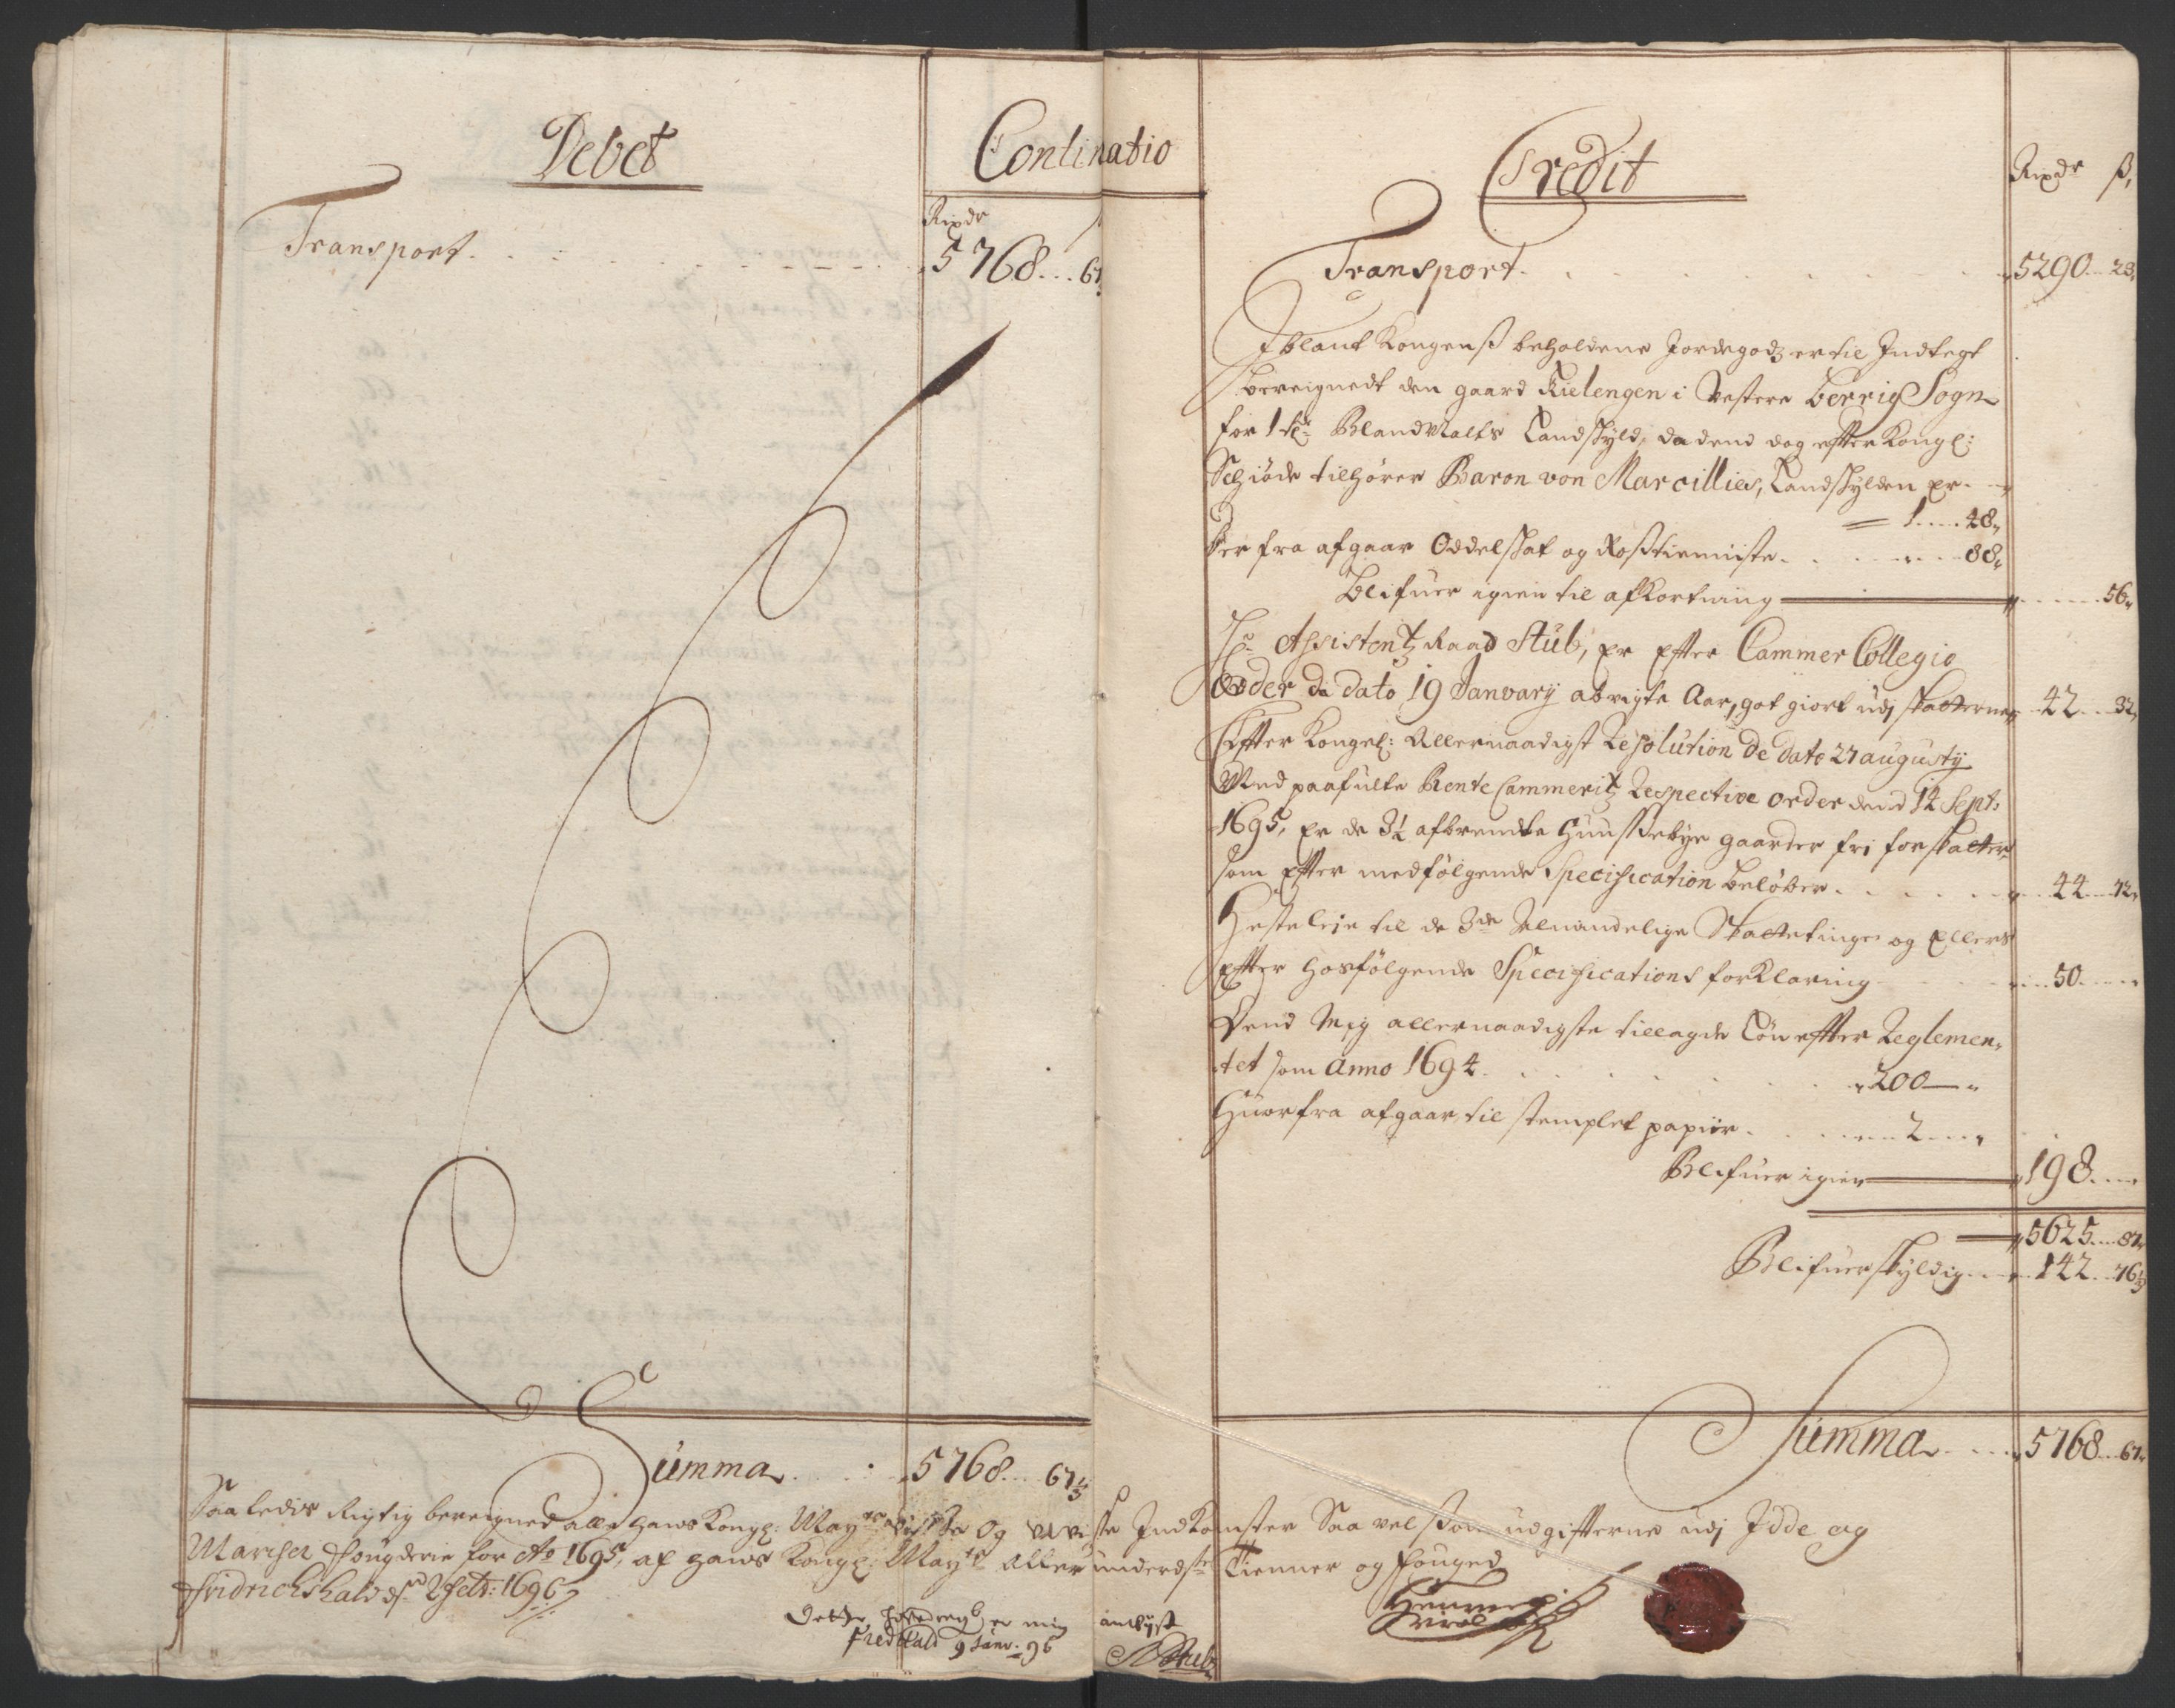 Debet
Continatio
Rixdr
Transport. 5768 . . . 67
Summa . . . 5768 . . . 67⅓
Credit
Rixdr ß,
Transport. 5290 . . 23,
Iblant Kongenß beholdene Jordegodz er til Indtegt
bereignedt den gaard Kielengen i Vestere Berrig Sogn
for 1 Blandmalts Landskyld, da dend dog effter Kongl:
Schiøde tilhører Baron von Marcillies, Landskylden er
1 . . . . 48,
Her fra afgaar Oddelskat og Roßtieniste . . . 88,
Blifuer igien til afkortning . . . 56,
Hr. Assistentz Raad Stub, er effter Cammer Collegio
Order da dato 19 January abrigte Aar, got giort udj skatterne 42 . . 32,
Effter Kongel: Allernaadigst Resolution de dato 27 augustij
Med paafulte Rente Cammeritz Respective order dend 14 Sept:
1695, er de 3¼ afbrendte Hunßebye gaarder fri for skatter
som effter medfølgende Specification beløber . . . 44 . . 42,
Hesteleje til de 3de Almindelige Skattetinge og Ellers
effter hosfølgende Specifications forklaring . . . 50 . . .
Dend Mig allernaadigste tillagde Løn effter Reglemen,
tet som anno 1694 . . . 200 — ,,
Huorfra afgaar til stemplet papiir . . . 2 . . .
Blifuer igien 198 . . .
5625 . . . 87,
Blifuer skyldig . . . 142 . . 76⅓
Summa . . . 5768 . . 67,
Saaledis Rigtig bereigned alle Hans Kongl: Maytz Visse Og Uvisse Indkomster Saavel som udgifterne udj Idde og
Marcher fougderie for Ao 1695, af Hans Kongl: Maytz Aller underdste Tienner og fouged
Fridrichshald d: 2 febr: 1696
Dette er min
Fredhald 9 Janv. 96
Stub